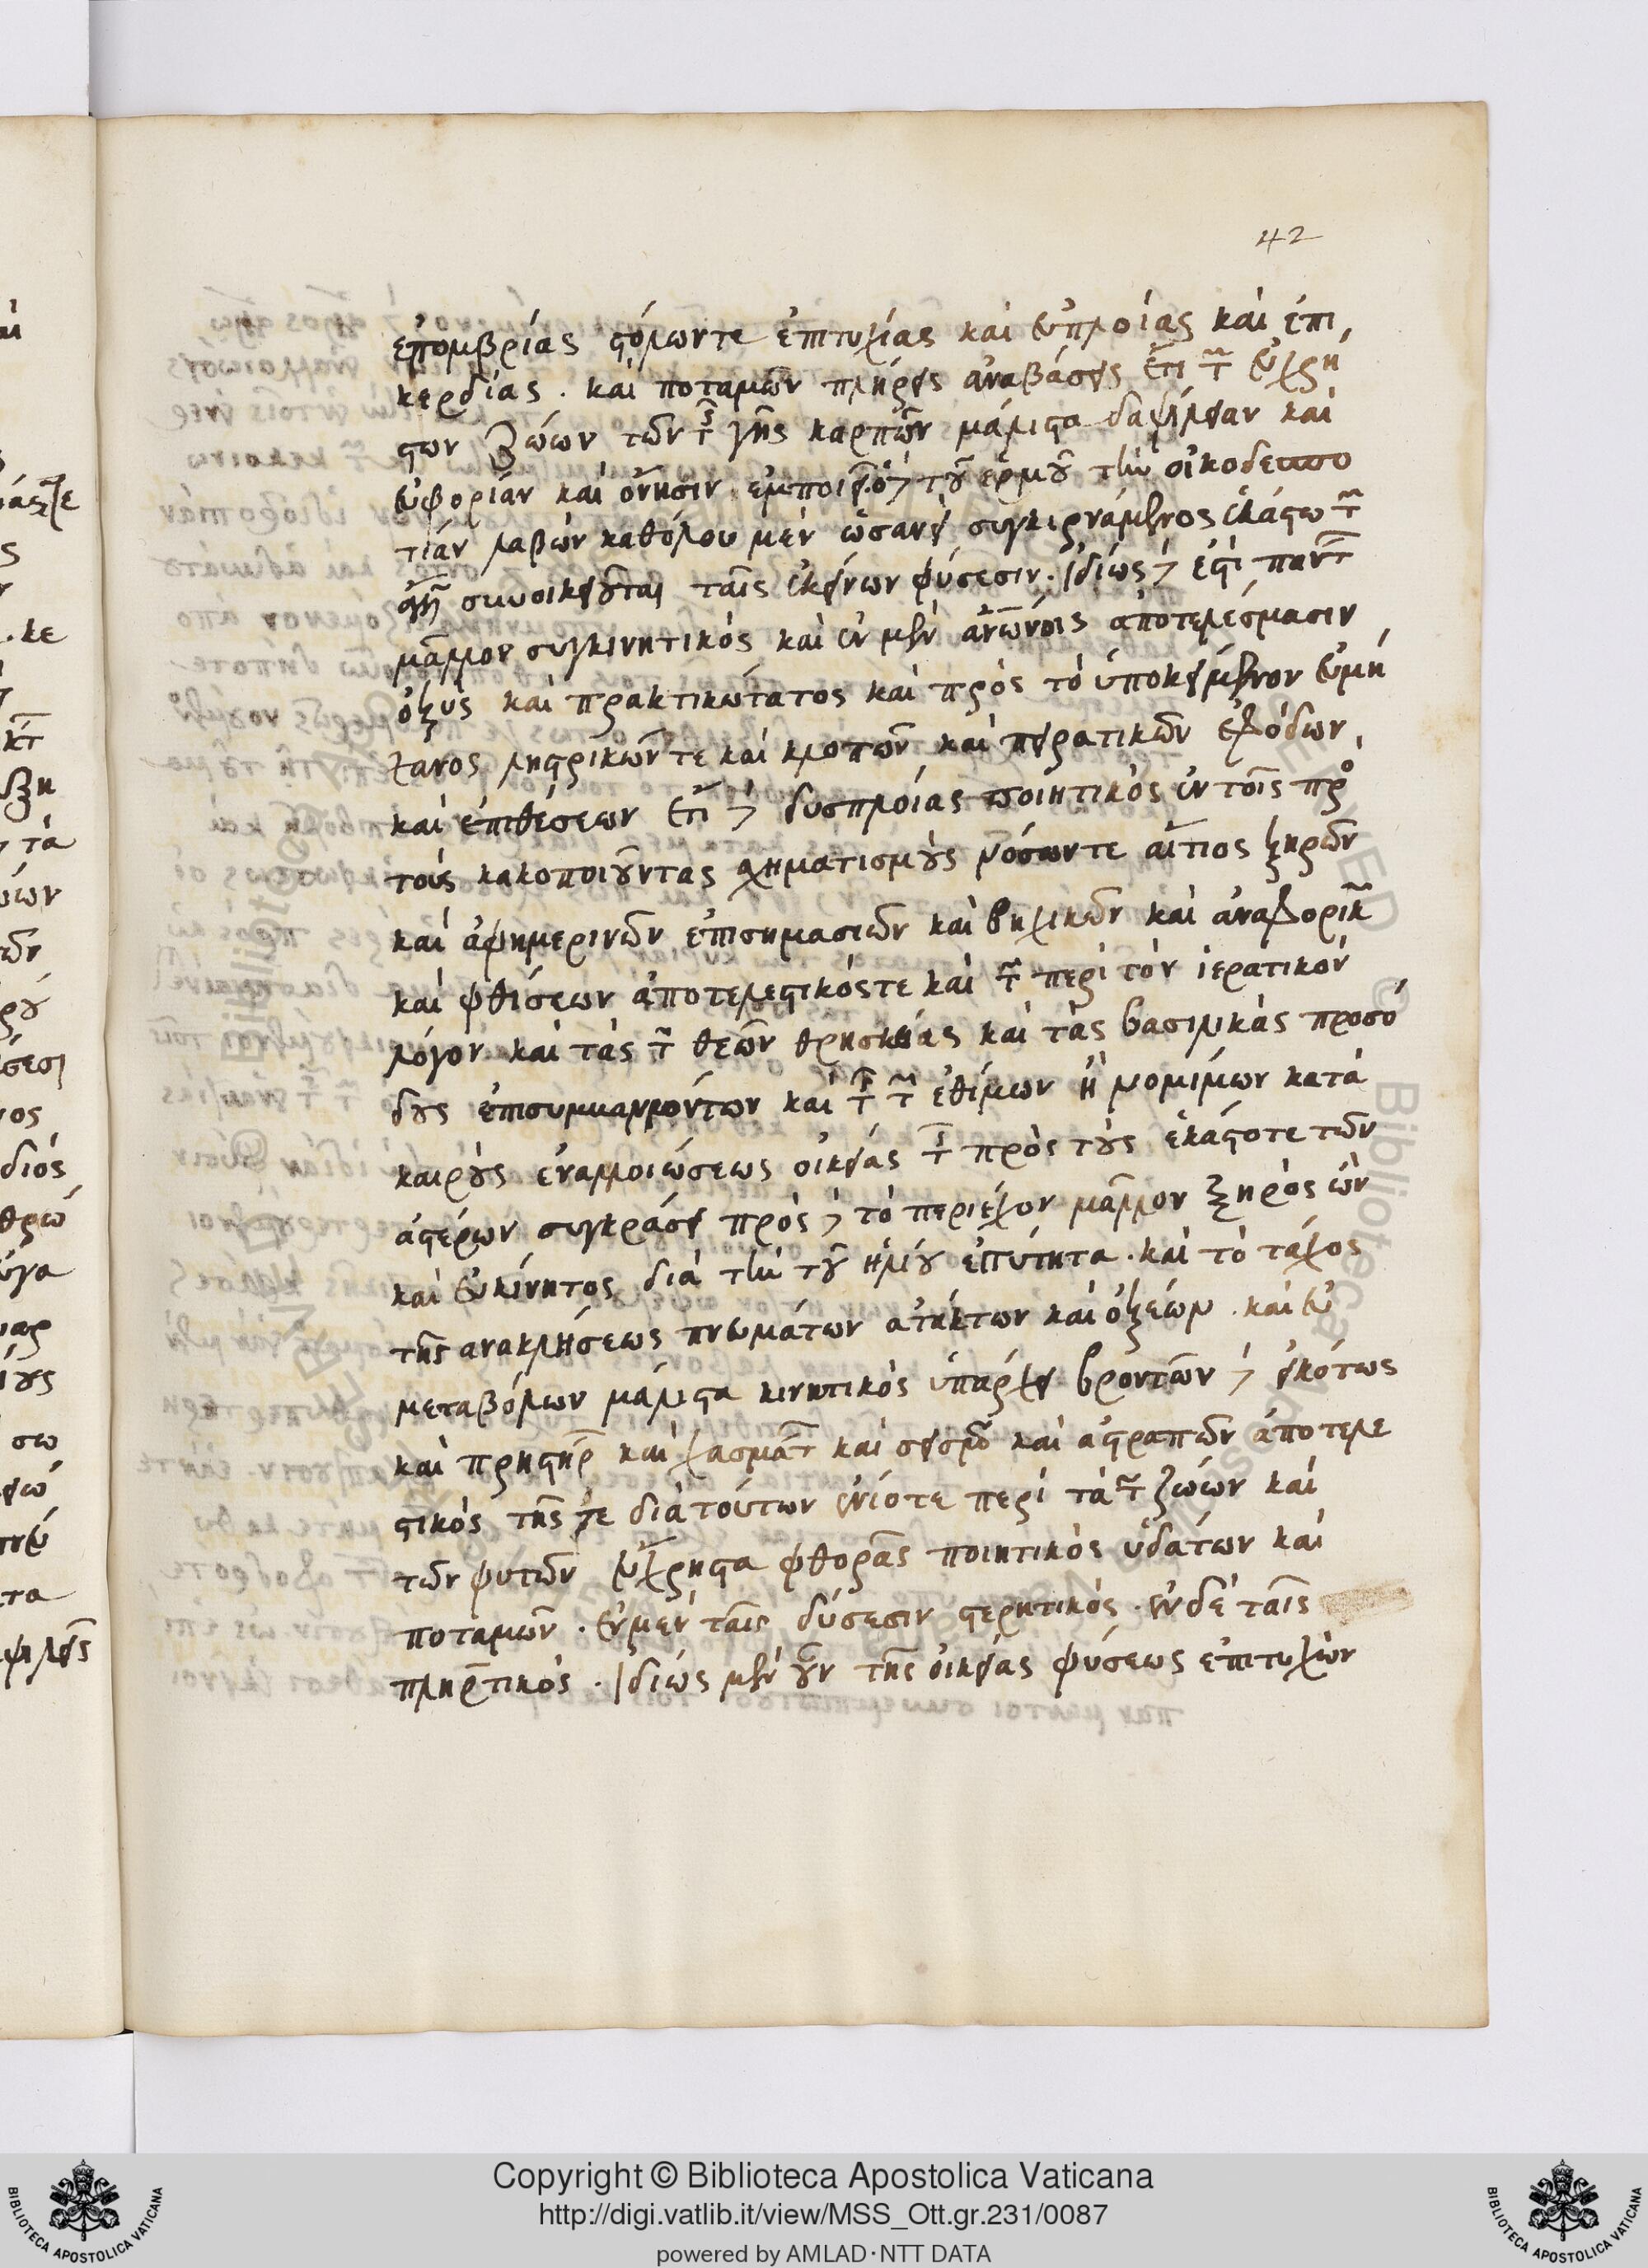 42
ἐπομβρίας στόλων τε ἐπιτυχίας καὶ εὐπλοίας καὶ ἐπι
κερδίας. καὶ ποταμῶν πλήρεις ἀναβάσεις ἔτι τῶν εὐχρή
στων ζώων τῶν τῆς γῆς καρπῶν μάλιστα δαψίλειαν καὶ
εὐφορίαν καὶ ὄνησιν ἐμποιεῖ. ὁ δὲ τοῦ ἑρμοῦ τὴν οἰκοδεσπο
τίαν λαβὼν καθόλου μὲν ὡσανεὶ συγκιρνάμενος ἑκάστω τῶν
συνοικειοῦται ταῖς ἐκείνων φύσεσιν. ἰδίως δὲ ἐστὶ πάντων
μᾶλλον συγκινητικός καὶ ἐν μὲν ἀνθρωπίνοις ἀποτελέσμασιν
ὀξὺς καὶ πρακτικώτατος καὶ πρὸς τὸ ὑποκείμενον εὐμή
χανος ληστρικῶν τε καὶ κλοπῶν καὶ πειρατικῶν ἐφόδων
καὶ ἐπιθέσεων ἔτι δὲ δυσπλοίας ποιητικὸς ἐν τοῖς πρὸς
τοὺς κακοποιοῦντας σχηματισμοὺς νόσων τε αἴτιος ξηρῶν
καὶ ἀφημερινῶν ἐπισημασιῶν καὶ βηχικῶν καὶ ἀναφορικῶν
καὶ φθίσεων ἀποτελεστικός τε καὶ τῶν περὶ τὸν ἱερατικὸν
λόγον καὶ τὰς τῶν θεῶν θρησκείας καὶ τὰς βασιλικὰς προσό
δους ἐπισυμβαινόντων καὶ τῆς τῶν ἐθίμων ἢ νομίμων κατὰ
καιροὺς ἐναλλοιώσεως οἰκείας τῇ πρὸς τοὺς ἑκάστοτε τῶν
ἀστέρων συγκράσει πρὸς δὲ τὸ περιέχον μᾶλλον ξηρὸς ὢν
καὶ εὐκίνητος διὰ τὴν τοῦ ἡλίου ἐγγύτητα. καὶ τὸ τάχος
τῆς ἀνακλήσεως πνευμάτων ἀτάκτων καὶ ὀξεέων. καὶ εὐ
μεταβόλων μάλιστα κινητικὸς ὑπάρχει βροντῶν δὲ εἰκότως
καὶ πρηστήρων καὶ χασμάτων καὶ σεισμῶν καὶ ἀστραπῶν ἀποτελε
στικὸς τῆς τε διὰ τούτων ἐνίοτε περὶ τὰ τῶν ζώων καὶ
τῶν φυτῶν εὔχρηστα φθορᾶς ποιητικὸς ὑδάτων καὶ
ποταμῶν. ἐν μὲν ταῖς δύσεσιν στερητικός. ἐν δὲ ταῖς
πληρωτικός. ἰδίως μὲν οὖν τῆς οἰκείας φύσεως ἐπιτυχὼν
Copyright © Biblioteca Apostolica Vaticana
http://digi.vatlib.it/view/MSS_Ott.gr.231/0087
powered by AMLAD·NTT DATA
BIBLIOTECA APOSTOLICA VATICANA
BIBLIOTECA APOSTOLICA VATICANA